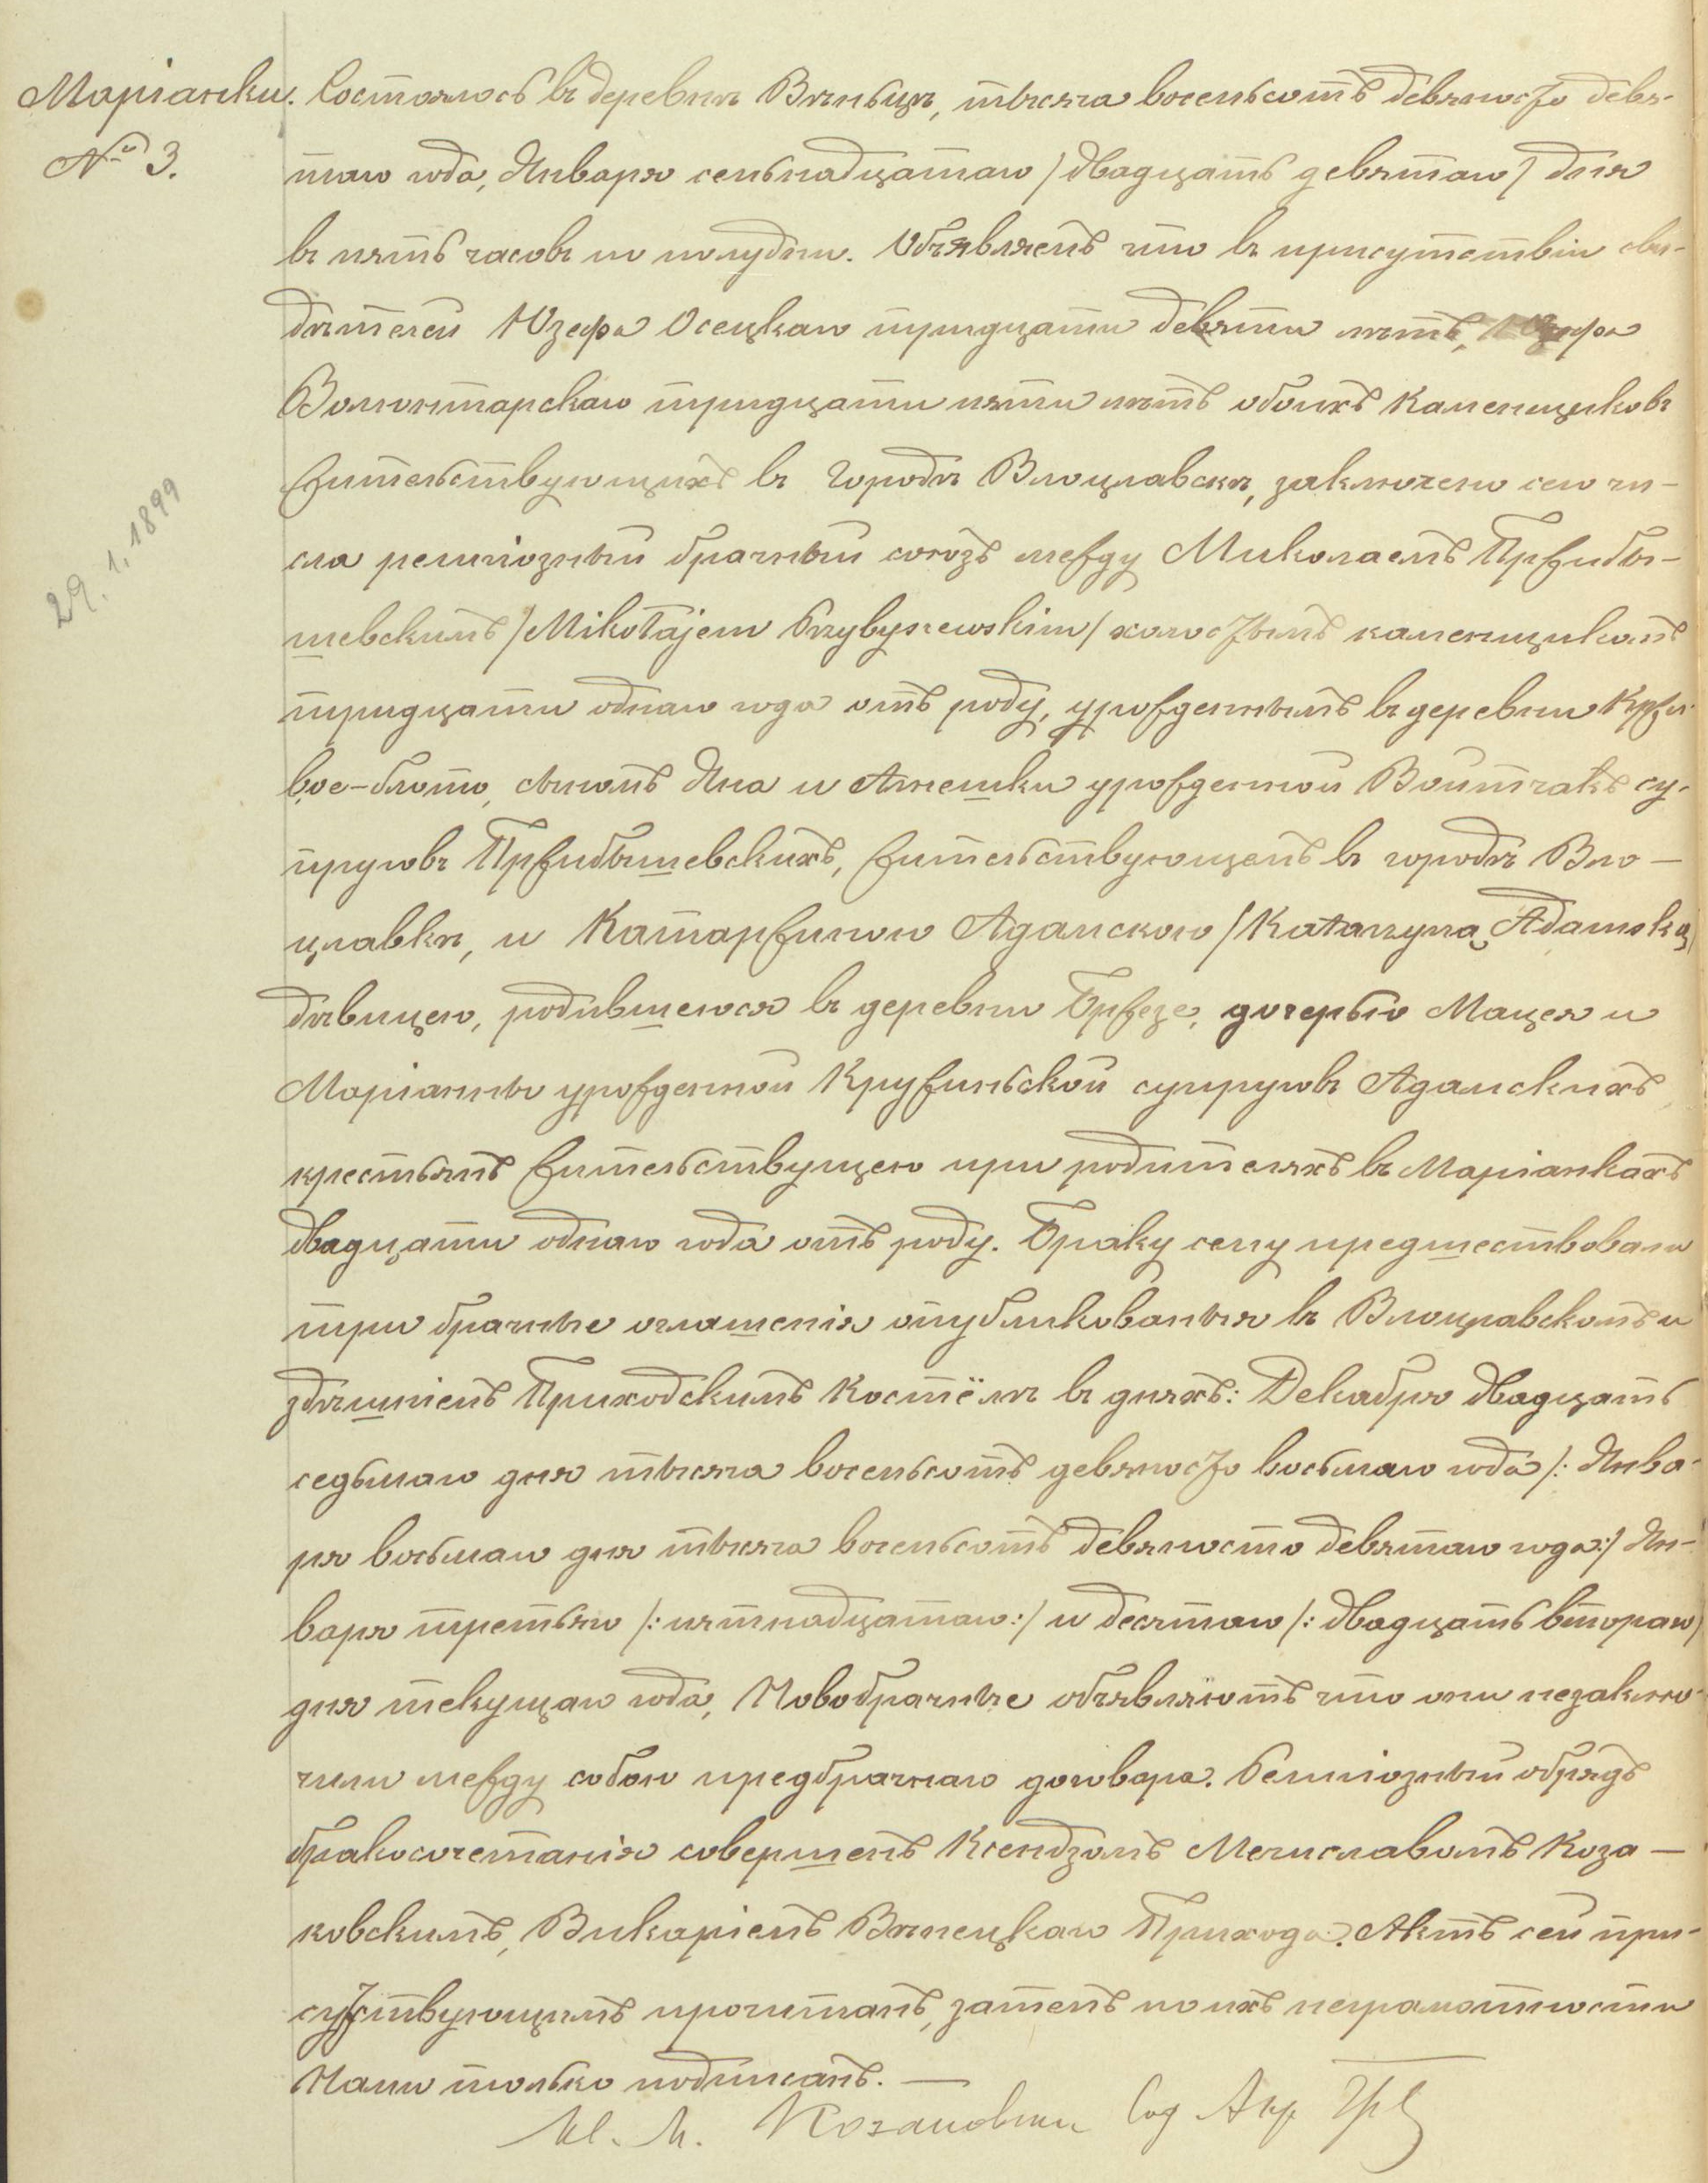 Маріанки.
№ 3.
29.1.1899
Состоялось въ деревнѣ Вѣньцѣ, тысяча восемьсотъ девяносто девя-
таго года, Января семьнадцатаго /двадцать девятаго/ дня
въ пять часовъ по полудни. Объявляемъ что въ присутствіи сви-
дѣтелей Юзефа Осецкаго тридцати девяти лѣтъ, Юзефа
Волонтарскаго тридцати пяти лѣтъ обоихъ каменщиковъ
жительствующихъ въ городѣ Влоцлавскѣ, заключено сего чи-
сла религіозный брачный союзъ между Миколаемъ Пржибы-
шевскимъ /Mikołajem Przybyszewskim/ холостымъ каменщикомъ
тридцати одного года отъ роду, урожденнымъ въ деревни Кржи-
вое-блото, сыномъ Яна и Агнешки урожденной Войтчакъ су-
пруговъ Пржибышевскихъ, жительствующемъ въ городѣ Вло-
цлавкѣ, и Катаржиною Адамскою /Katarzyną Adamską/
дѣвицею, родившеюся въ деревни Бржезе, дочерью Мацея и
Маріанны урожденной Кружиньской супруговъ Адамскихъ
крестьянъ жительствущею при родителяхъ въ Маріанкахъ
двадцати одного года отъ роду. Браку сему предшествовали
три брачные оглашенія опубликованыя въ Влоцлавскомъ и
здѣшнiемъ Приходскимъ Костёлѣ въ дняхъ: Декабря двадцать
седьмаго дня тысяча восемьсотъ девяносто восьмаго года /: Янва-
ря восьмаго дня тысяча восемьсотъ девяносто девятаго года:/ Ян-
варя третьяго /: пятнадцатаго:/ и десятаго /: двадцать втораго/
дня текущаго года, Новобрачные объявляютъ что они незаклю-
чили между собою предбрачнаго договора. Религіозный обрядъ
бракосочетанія совершенъ Ксендзомъ Мечиславомъ Коза-
ковскимъ, Викаріемъ Вѣнецкаго Прихода. Актъ сей при-
сутствующимъ прочитанъ, затемъ по ихъ неграмотности
Нами только подписанъ. —
Кс. М. Козаковски Сод Акт